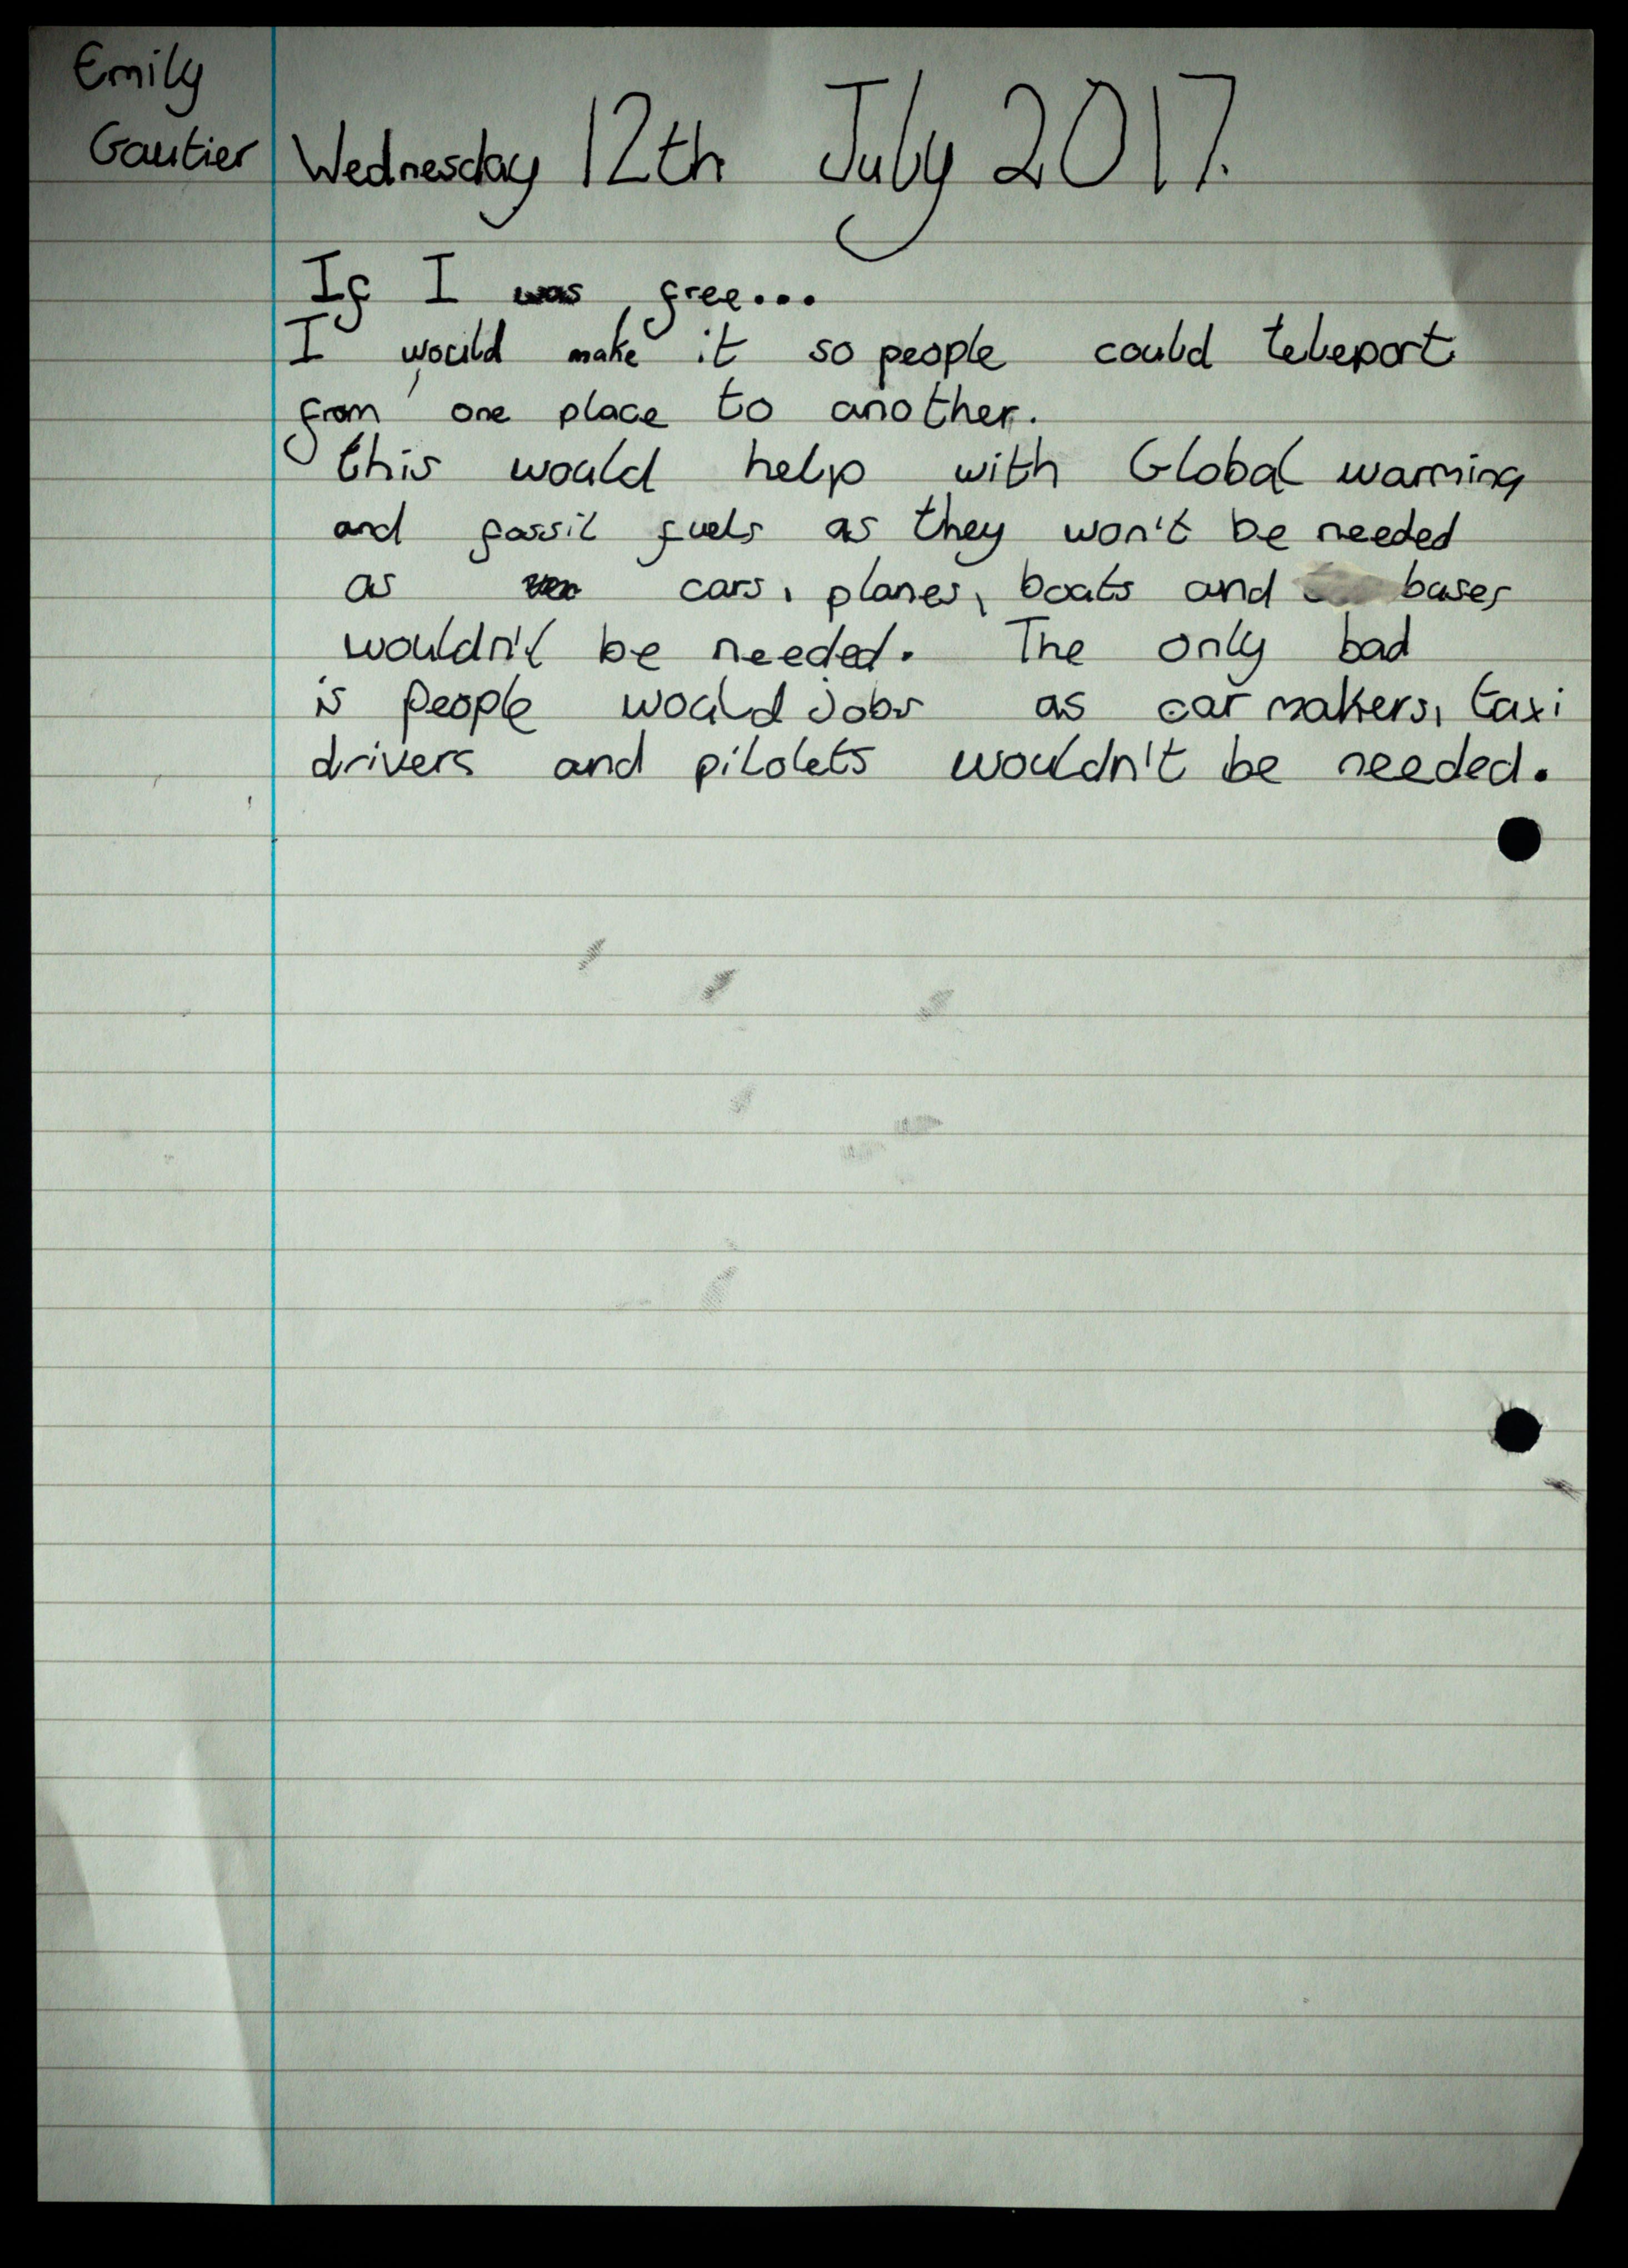 Emily
Gautier
Wednesday 12th July 2017.
If I was free...
I would make it so people could teleport
from one place to another.
this would help with Global warming
and fossil fuels as they won't be needed
as cars, planes, boats and buses
wouldn't be needed. The only bad
is people would jobs as car makers, taxi
drivers and pilolets wouldn't be needed.